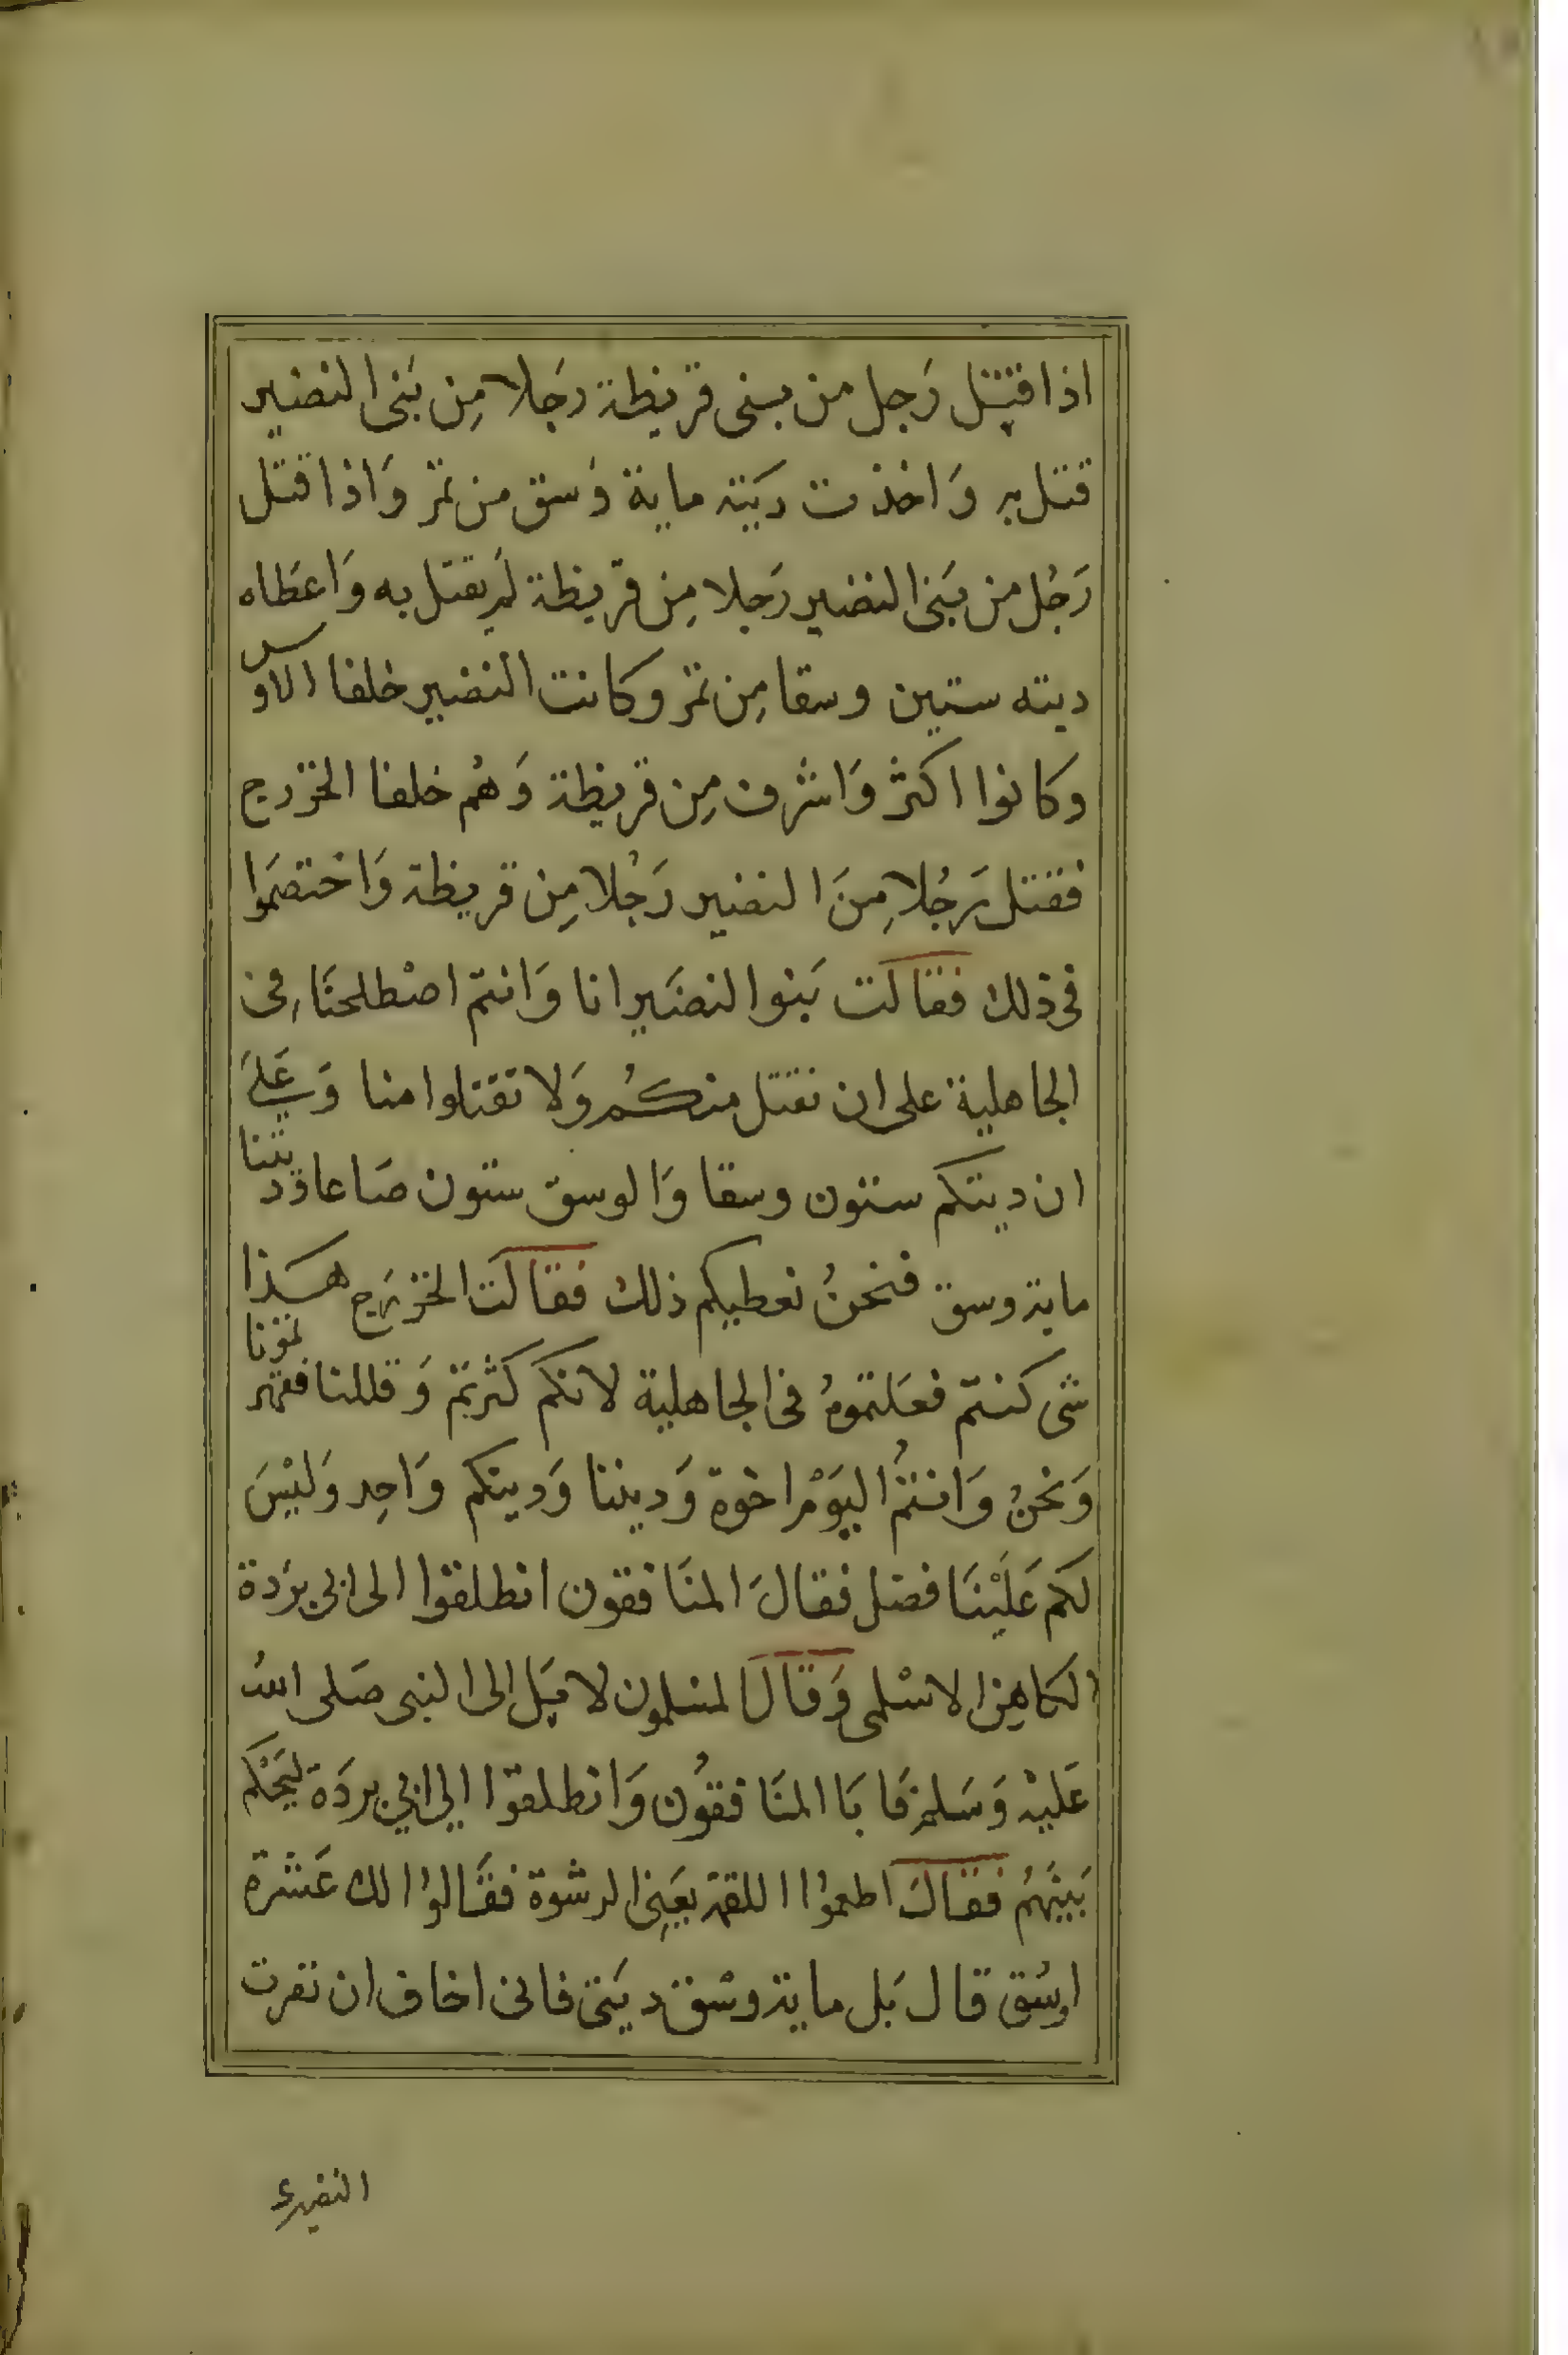 اذا قتل رَجل من بنى قريظة رجَلا مِن بَنى النضير
قتل به وَ اخذت ديَته ماية وَسق من تمر وَاذا قتل
رَجُل من بَنى النضير رَجلا مِن قريظة لم يقتل به وَاعطَاه
ديته ستين وسقا مِن تمر وكانت النضير خلفا الاوس
وكانوا اكثر وَاشرف مِن قريظة وَهُم خلفا الخزرج
فقتل رَجُلا مِنَ النضير رَجُلا مِن قريظة وَاختصمَوا
فى ذلك فقالَت بَنوا النضَير انا وَانتم اصْطلحنَا فِى
الجاهلية على ان نقتل منكُم وَلا تقتلوا منا وَ عَلىَ
ان ديتكم ستون وسقا وَالوسق ستون صَاعا وديتنا
ماية وسق فنحنُ نعطيكم ذلك فقالَت الخزرَج هكذا
شى كنتم فعَلتموهُ فى الجاهلية لانكم كثرتم وَقللنا فقهرتمونا
وَنحنُ وَانتمُ اليَوْم اخوة وَديننا وَدينكم وَاحِد وَليْسَ
لكم عَليْنَا فضل فقالَ المنَافقون انطلقوا الى ابى برَدة
الكاهِن الاسْلمى وَقالَ المسلمون لا بَل الى النبى صَلى اللهُ
عَليْه وَسَلم فَابَا المنَافقوُن وَانطلقوا الي ابي بردَة ليَحْكم
بَينَهُم فقالَ اطعموُا اللقمة يعَنِى الرشوة فقَالوُا لك عَشرة
اوسُق قال بَل ماية وسْق ديَتى فانى اخاف ان نفرت
النضيرى